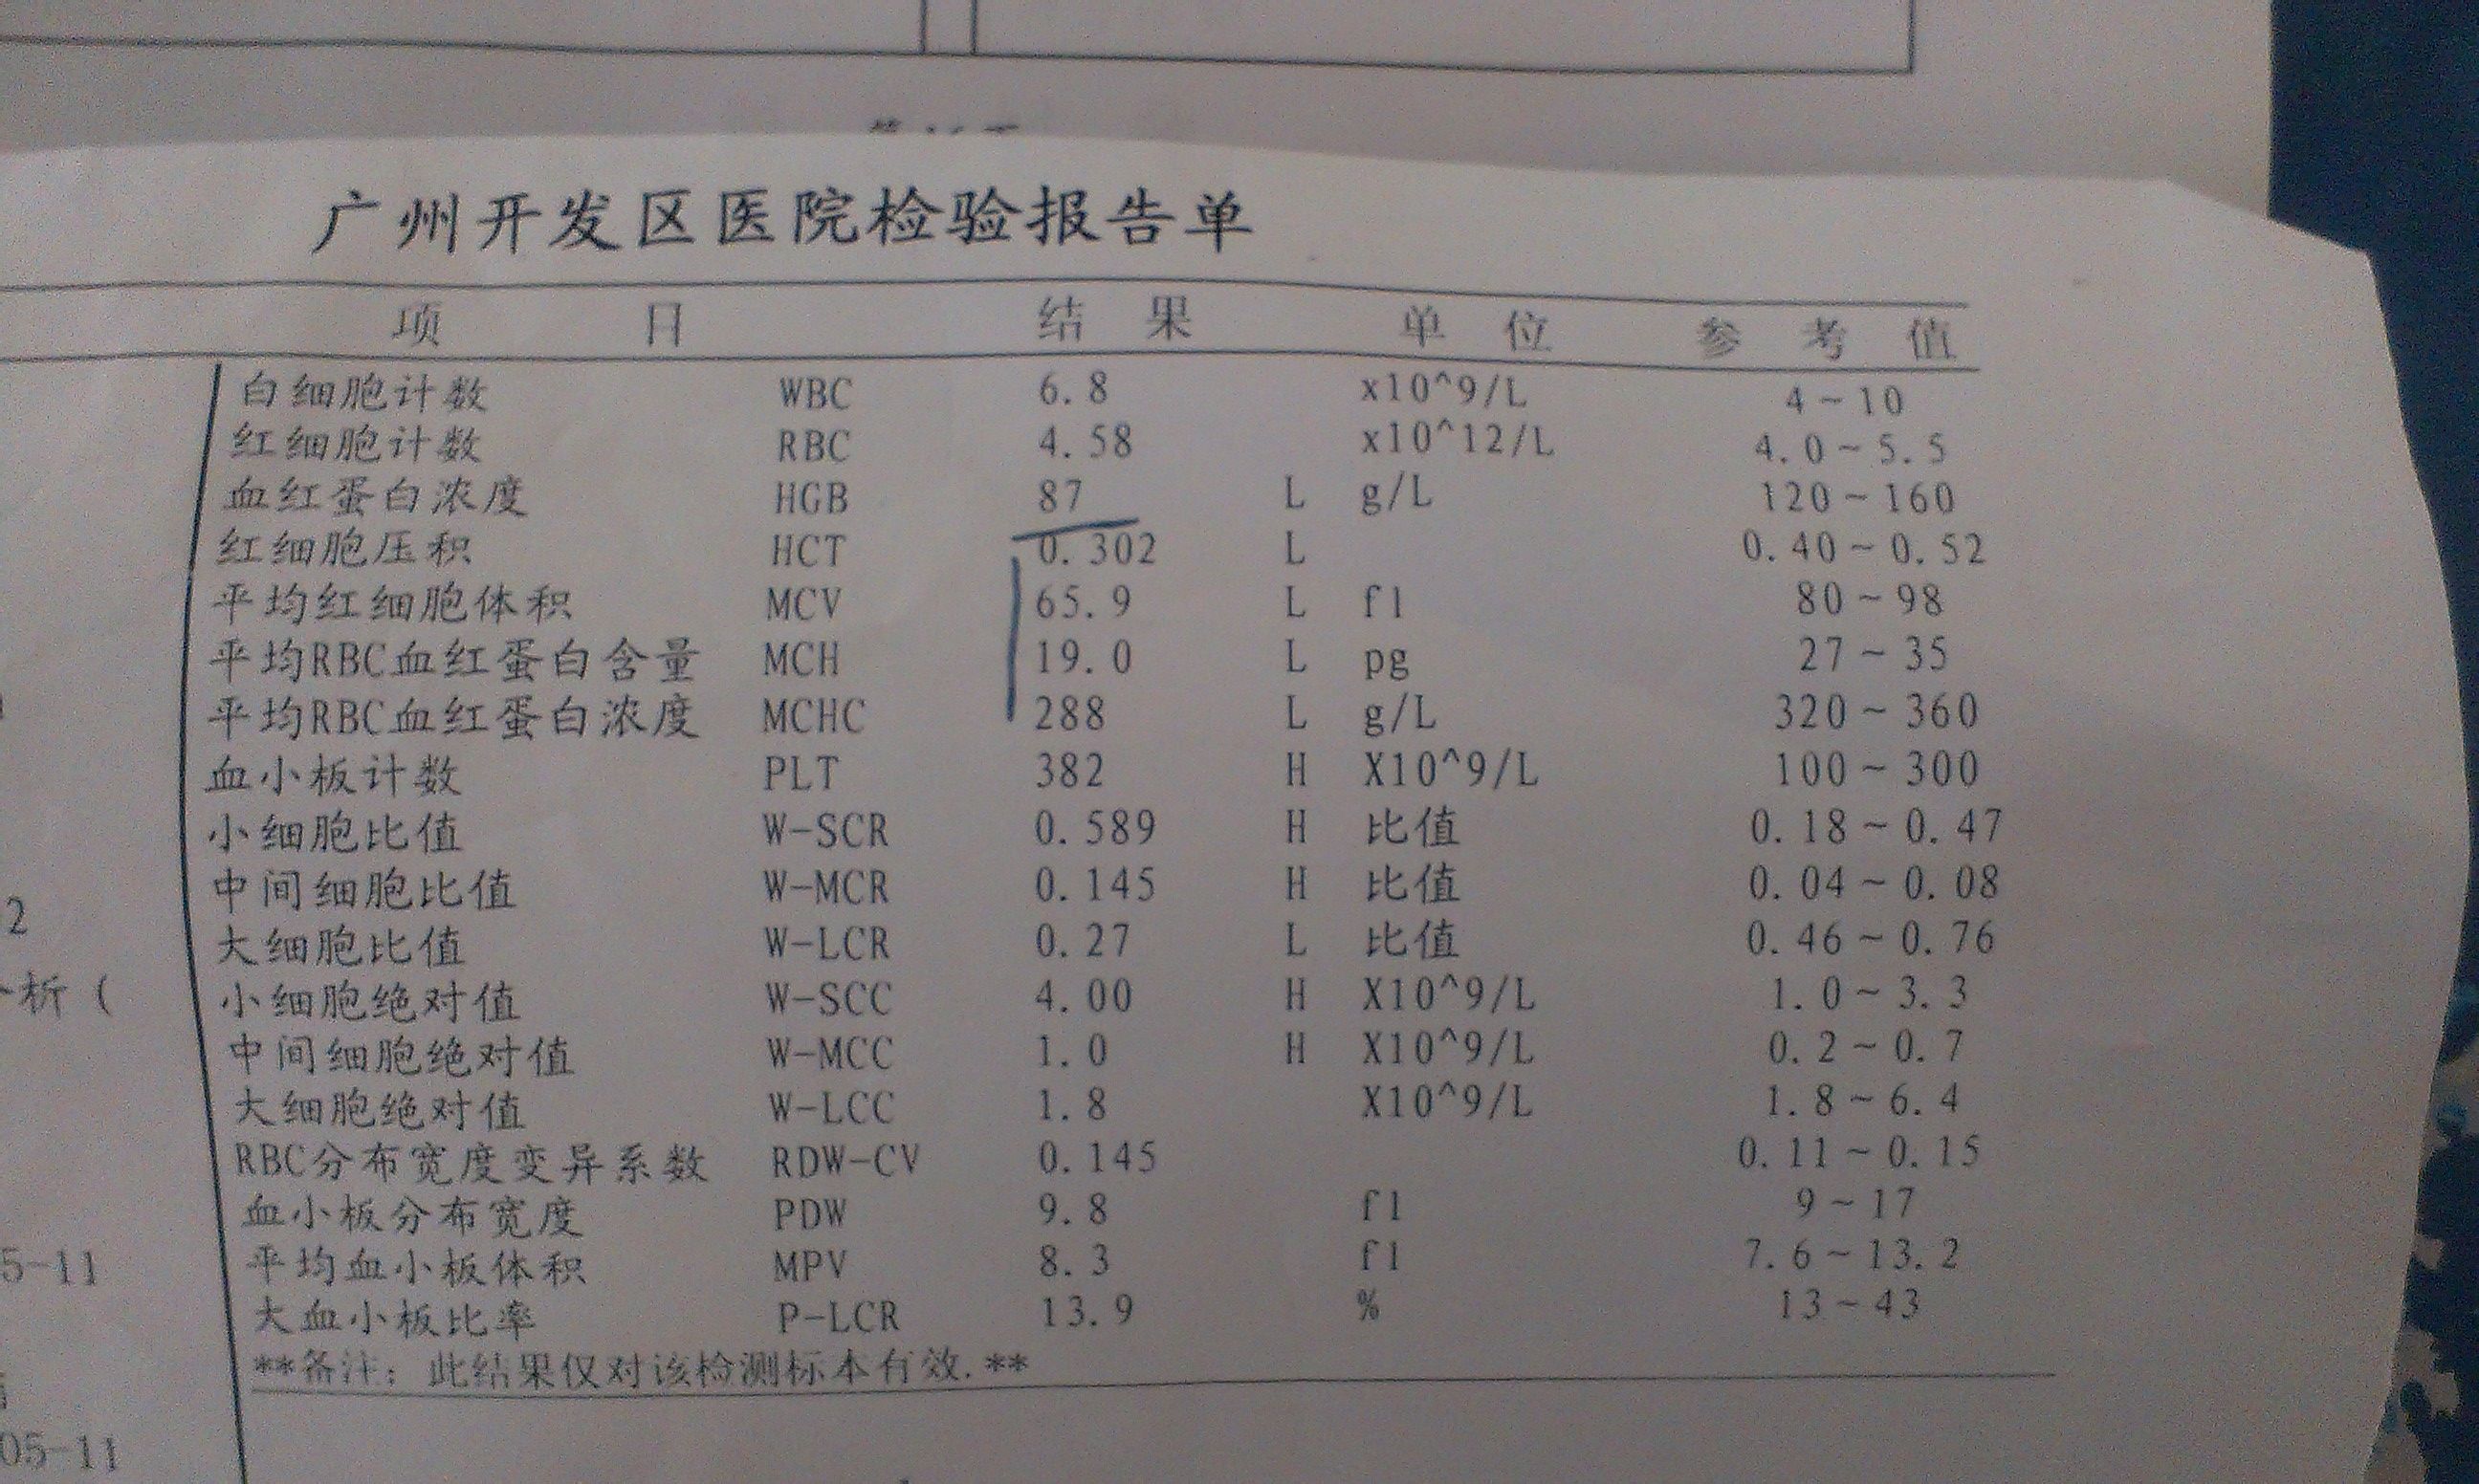 广州开发区医院检验报告单
项 目 结 果 单 位 参 考 值
白细胞计数 WBC 6.8 x10^9/L 4~10
红细胞计数 RBC 4.58 x10^12/L 4.0~5.5
血红蛋白浓度 HGB 87 L g/L 120~160
红细胞压积 HCT 0.302 L 0.40~0.52
平均红细胞体积 MCV 65.9 L fl 80~98
平均RBC血红蛋白含量 MCH 19.0 L pg 27~35
平均RBC血红蛋白浓度 MCHC 288 L g/L 320~360
血小板计数 PLT 382 H X10^9/L 100~300
小细胞比值 W-SCR 0.589 H 比值 0.18~0.47
中间细胞比值 W-MCR 0.145 H 比值 0.04~0.08
2
大细胞比值 W-LCR 0.27 L 比值 0.46~0.76
析(
小细胞绝对值 W-SCC 4.00 H X10^9/L 1.0~3.3
中间细胞绝对值 W-MCC 1.0 H X10^9/L 0.2~0.7
大细胞绝对值 W-LCC 1.8 X10^9/L 1.8~6.4
RBC分布宽度变异系数 RDW-CV 0.145 0.11~0.15
血小板分布宽度 PDW 9.8 fl 9~17
5-11
平均血小板体积 MPV 8.3 fl 7.6~13.2
大血小板比率 P-LCR 13.9 % 13~43
**备注: 此结果仅对该检测标本有效.**
05-11